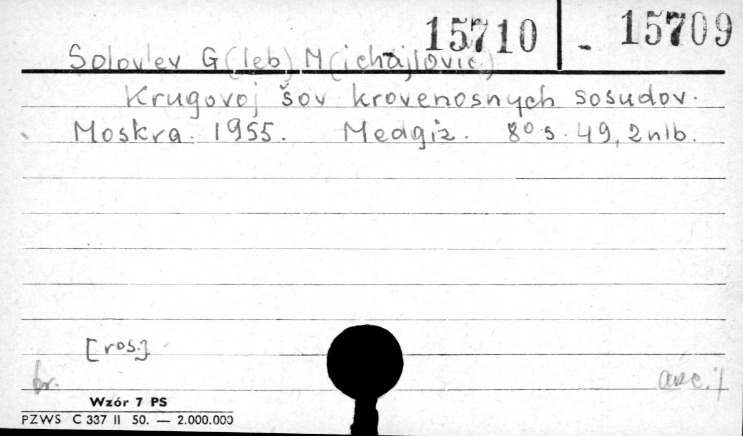 15710 - 15709
Solov'ev G(leb) M(ichajlovič)
Krugovoj šov krovenosnych sosudov.
Moskva. 1955. Medgiz. 8° s. 49, 2nlb.
[ros.]
br.
Wzór 7 PS
PZWS C 337 II 50. — 2.000.000